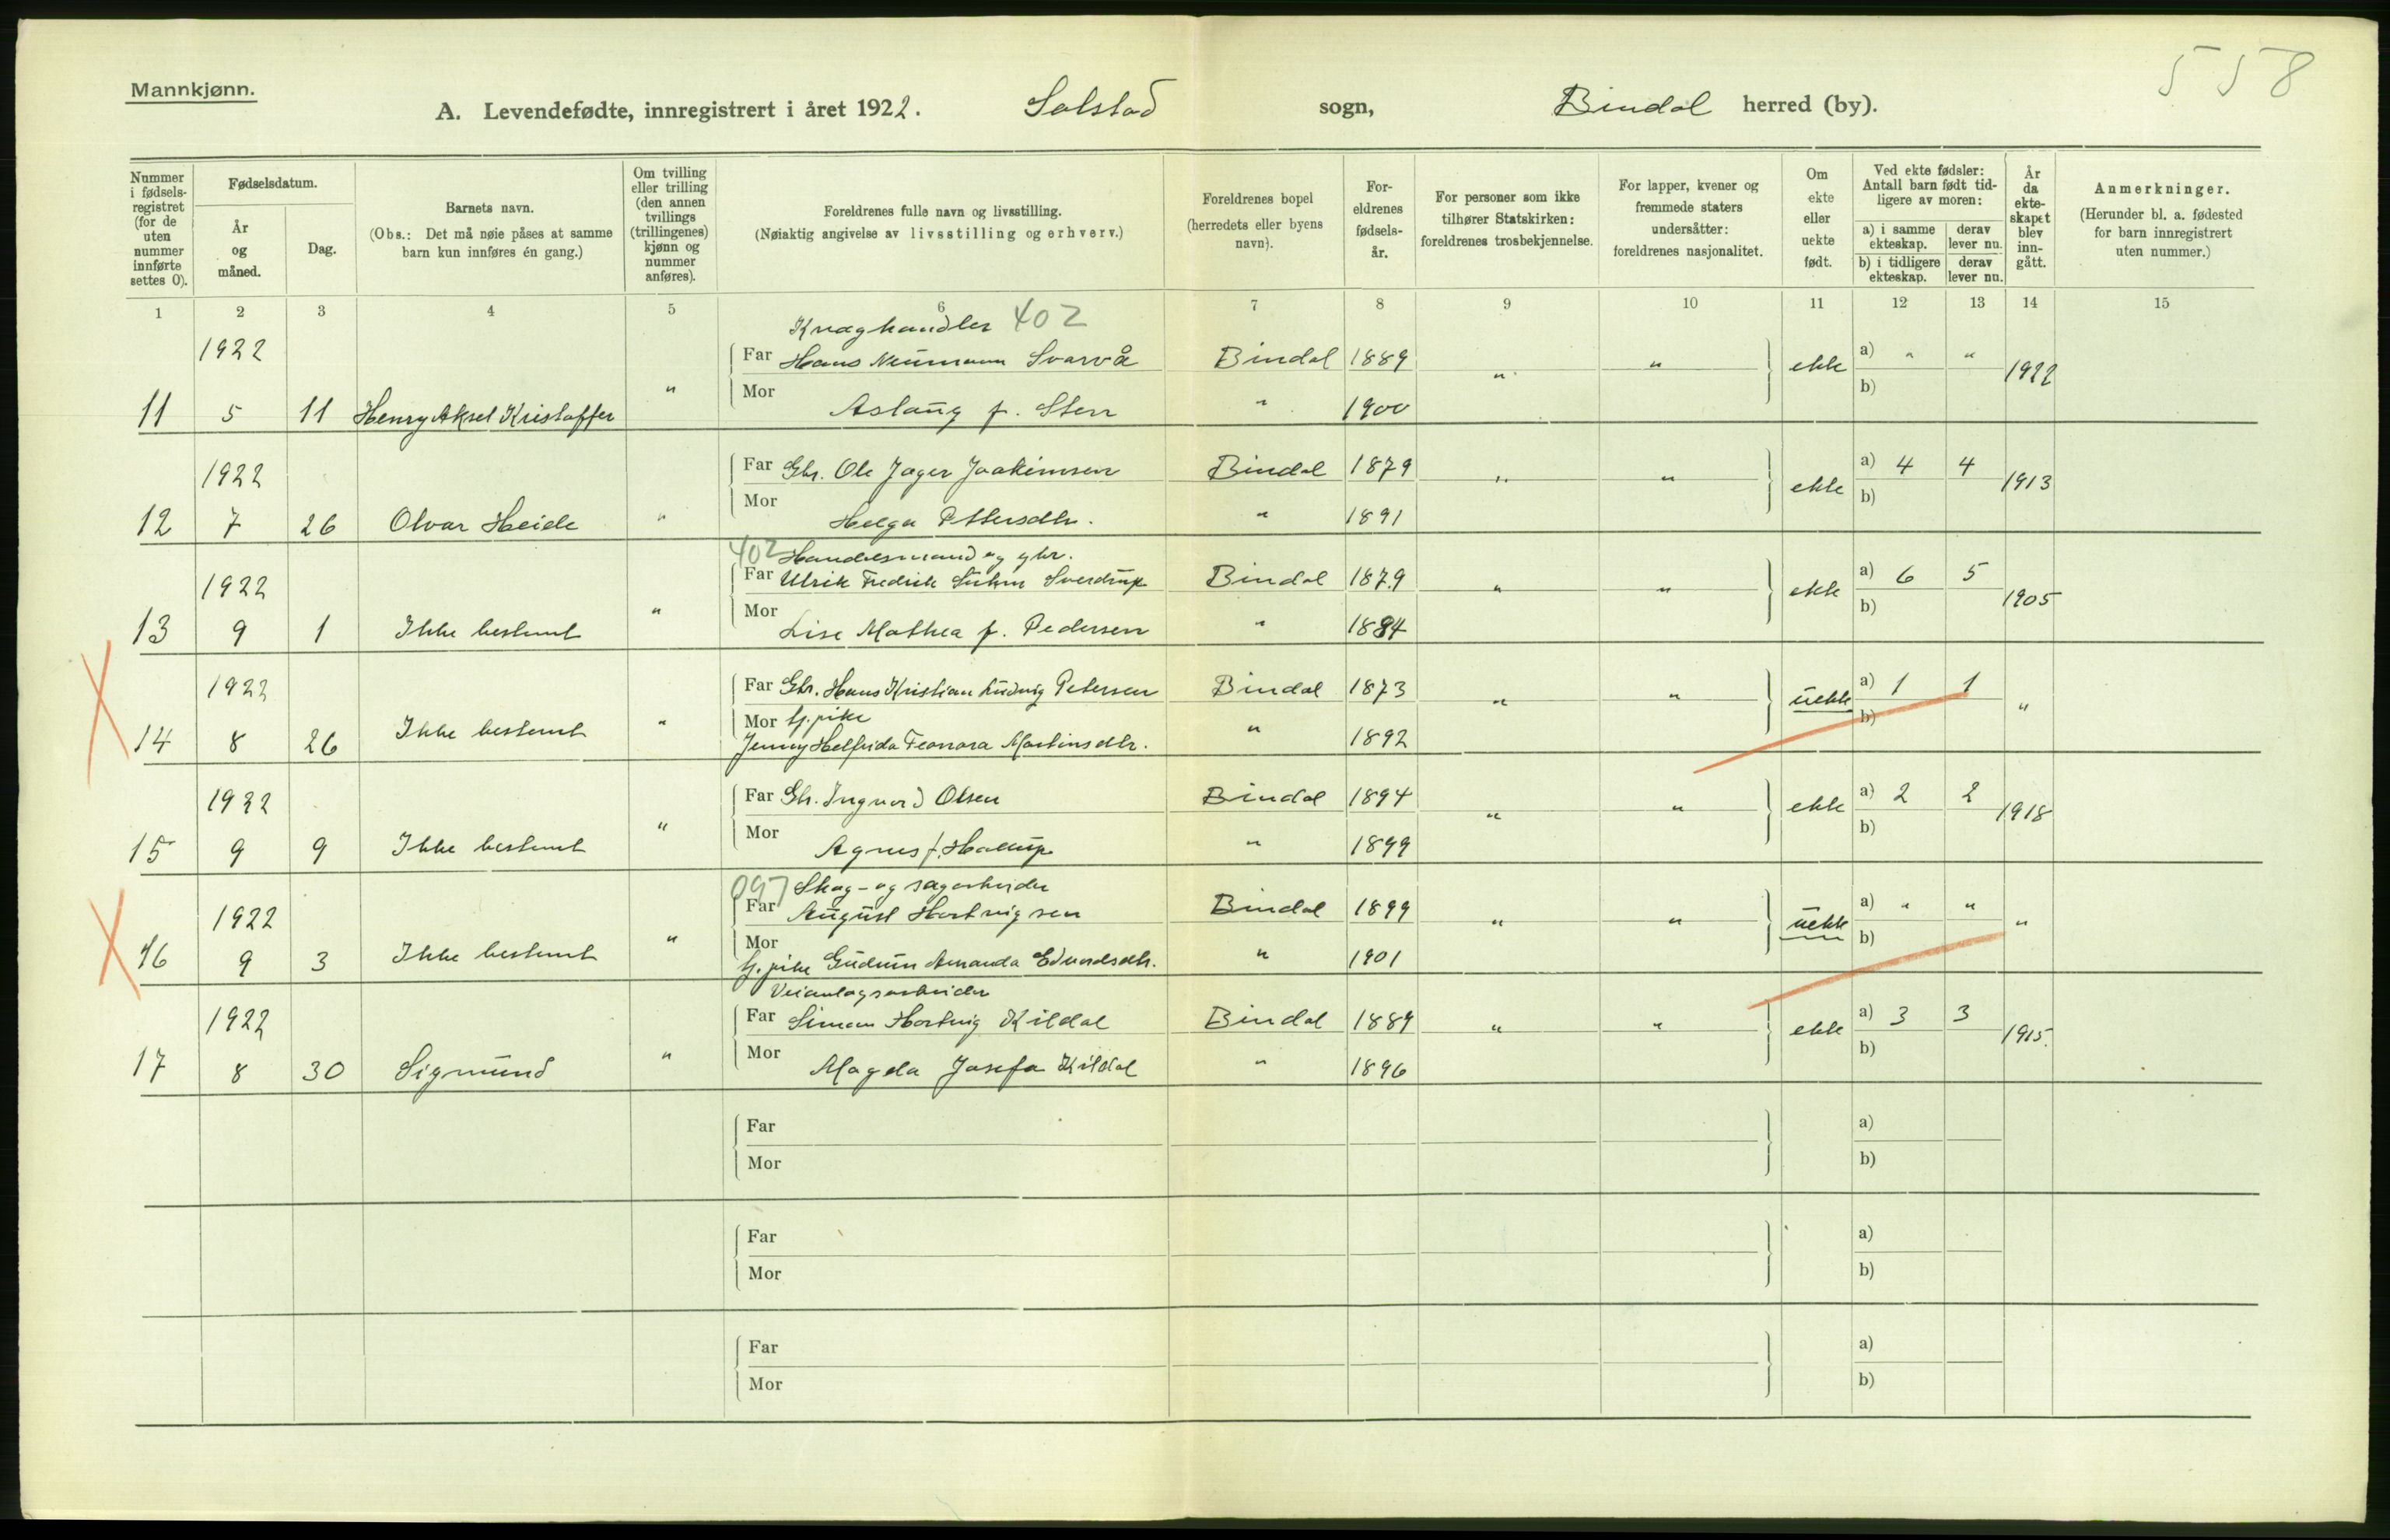 558
Mannkjønn.
A. Levendefødte, innregistrert i året 1922. Solstad sogn, Bindal herred (by).
Nummer i fødsels-registret (for de uten nummer innførte settes 0).
Fødselsdatum.
År og måned.
Dag.
Barnets navn.
(Obs.: Det må nøie påses at samme barn kun innføres én gang.)
Om tvilling eller trilling (den annen tvillings (trillingenes) kjønn og nummer anføres).
Foreldrenes fulle navn og livsstilling.
(Nøiaktig angivelse av livsstilling og erhverv.)
Foreldrenes bopel (herredets eller byens navn).
For-eldrenes fødsels-år.
For personer som ikke tilhører Statskirken: foreldrenes trosbekjennelse.
For lapper, kvener og fremmede staters undersåtter: foreldrenes nasjonalitet.
Om ekte eller uekte født.
Ved ekte fødsler: Antall barn født tid-ligere av moren:
a) i samme ekteskap. derav lever nu.
b) i tidligere ekteskap. derav lever nu.
År da ekte-skapet blev inn-gått.
Anmerkninger.
(Herunder bl. a. fødested for barn innregistrert uten nummer.)
1 2 3 4 5 6 7 8 9 10 11 12 13 14 15
Kræghandler 402
1922 Far Hans Neumann Svarvå Bindal 1889 " " ekte a) " " 1922
11 5 11 Henry Aksel Kristoffer " Mor Aslaug f. Sten " 1900 b)
1922 Far Gbr. Ole Jager Joakimsen Bindal 1879 " " ekte a) 4 4 1913
12 7 26 Olvar Heide " Mor Helga Pettersdtr. " 1891 b)
402 Handelsmand og gbr.
1922 Far Ulrik Fredrik Suhm Sverdrup Bindal 1879 " " ekte a) 6 5 1905
13 9 1 Ikke bestemt " Mor Lise Mathea f. Pedersen " 1884 b)
1922 Far Gbr. Hans Kristian Ludvig Petersen Bindal 1873 " " uekte a) 1 1 "
14 8 26 Ikke bestemt " Mor tj. pike " 1892 b)
Jenny Helfrida Feonora Martinsdtr.
1922 Far Gbr. Ingvard Olsen Bindal 1894 " " ekte a) 2 2 1918
15 9 9 Ikke bestemt " Mor Agnes f. Hallup " 1899 b)
097 Skog- og sagarbeider
1922 Far August Hartvigsen Bindal 1899 " " uekte a) " " "
16 9 3 Ikke bestemt " Mor tj. pike Gudrun Amanda Edvardsdtr. " 1901 b)
Veianlægsarbeider
1922 Far Simon Hartvig Kildal Bindal 1889 " " ekte a) 3 3 1915.
17 8 30 Sigmund " Mor Magda Josefa Kildal " 1896 b)
Far a)
Mor b)
Far a)
Mor b)
Far a)
Mor b)